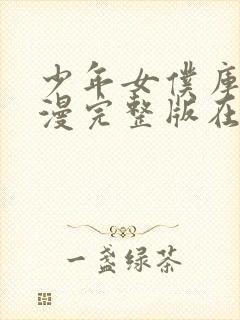 少年女僕库
漫完整版在
一盏绿茶